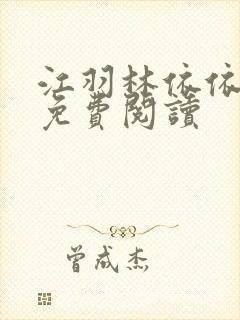 江羽林依依
免費閱讀
曾成杰